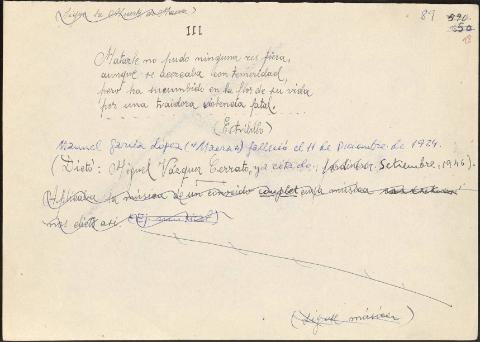 (Sigue la Muerte de Maera)
89 390
III 350
Matarle no pudo ninguna res fiera,
aunque se acercaba con temeridad,
pero ha sucumbido en la flor de su vida
por una traidora dolencia fatal.
(Estribillo)
Manuel García López ("Maera") falleció el 11 de Diciembre de 1924.
(Dictó: Miguel Vázquez Cerrato, ya citado; Setiembre, 1946).
la música de un conocido couplet cuya música
nos dictó así (Ej. musical)
(Sigue música)